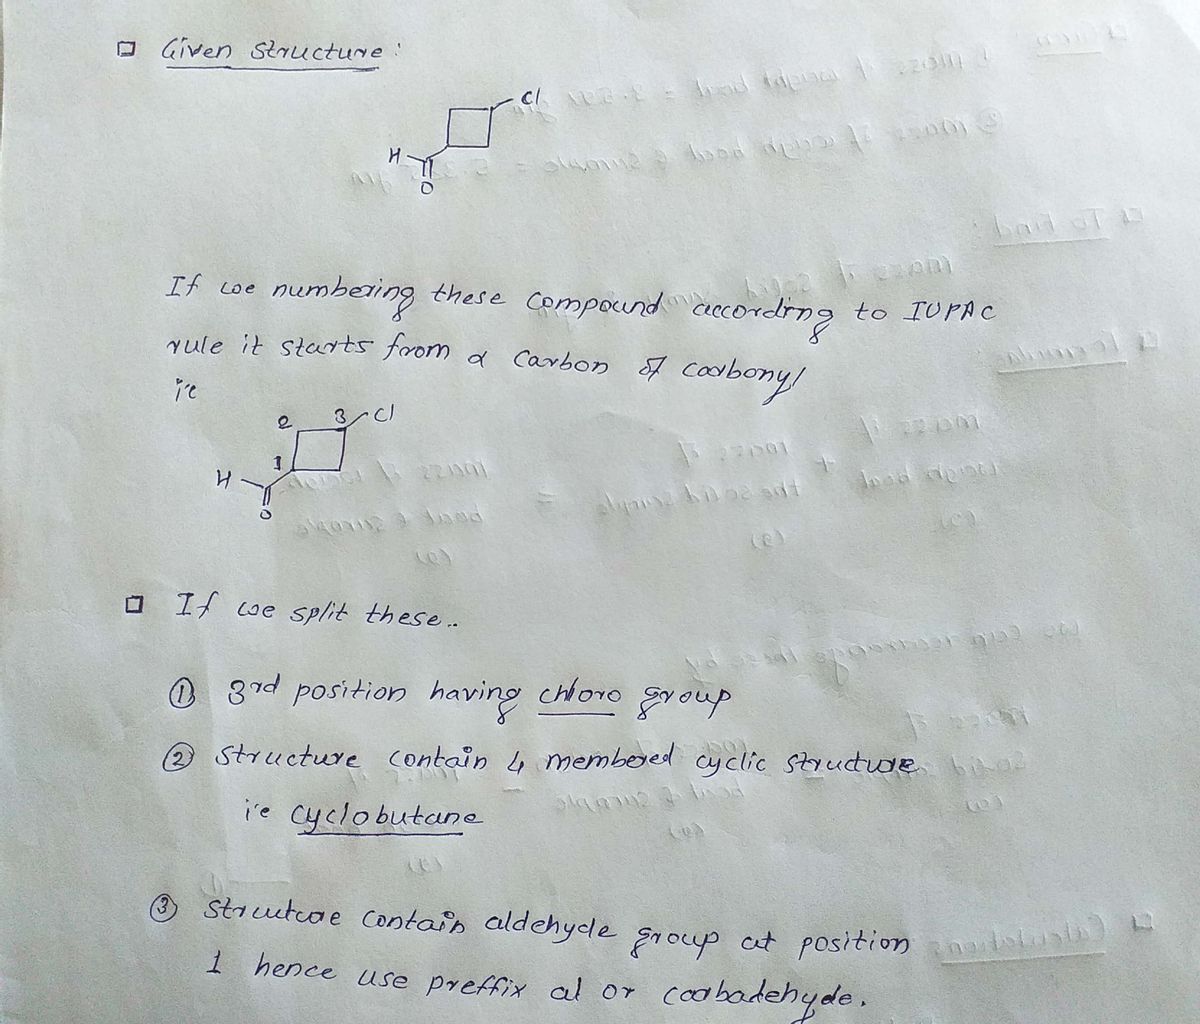 Given Structure:
Cl
H
O
If we numbering these compound according to IUPAC
rule it starts from α Carbon of carbonyl
i'e
2 3 Cl
1
H
O
If we split these..
① 3rd position having chloro group
② Structure contain 4 membered cyclic structure
i'e cyclobutane
③ Structure contain aldehyde group at position
1 hence use preffix al or carbadehyde.